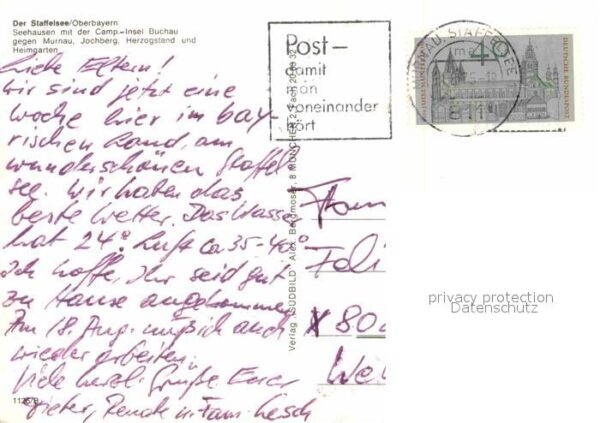 Der Staffelsee/Oberbayern
Seehausen mit der Camp.-Insel Buchau
gegen Murnau, Jochberg, Herzogstand und
Heimgarten
Liebe Eltern!
wir sind jetzt eine
Woche hier im bay-
rischen Land, am
wunderschönen Staffel
see. Wir haben das
beste Wetter. Das Wasser
hat 24°. Luft ca 35-40°
Ich hoffe, Ihr seid gut
zu Hause angekommen
Am 18. Aug. muß ich auch
wieder arbeiten.
Viele herzl. Grüße Euer
Dieter, Renate u. Fam.
1126/B
Post-
damit
man
voneinander
hört
MURNAU, STAFFELSEE
40
DEUTSCHE BUNDESPOST
Verlag "SÜDBILD" Alex. Bergmoser, 8 MÜNCHEN 2, Fach 20
Fam
X 80
privacy protection
Datenschutz